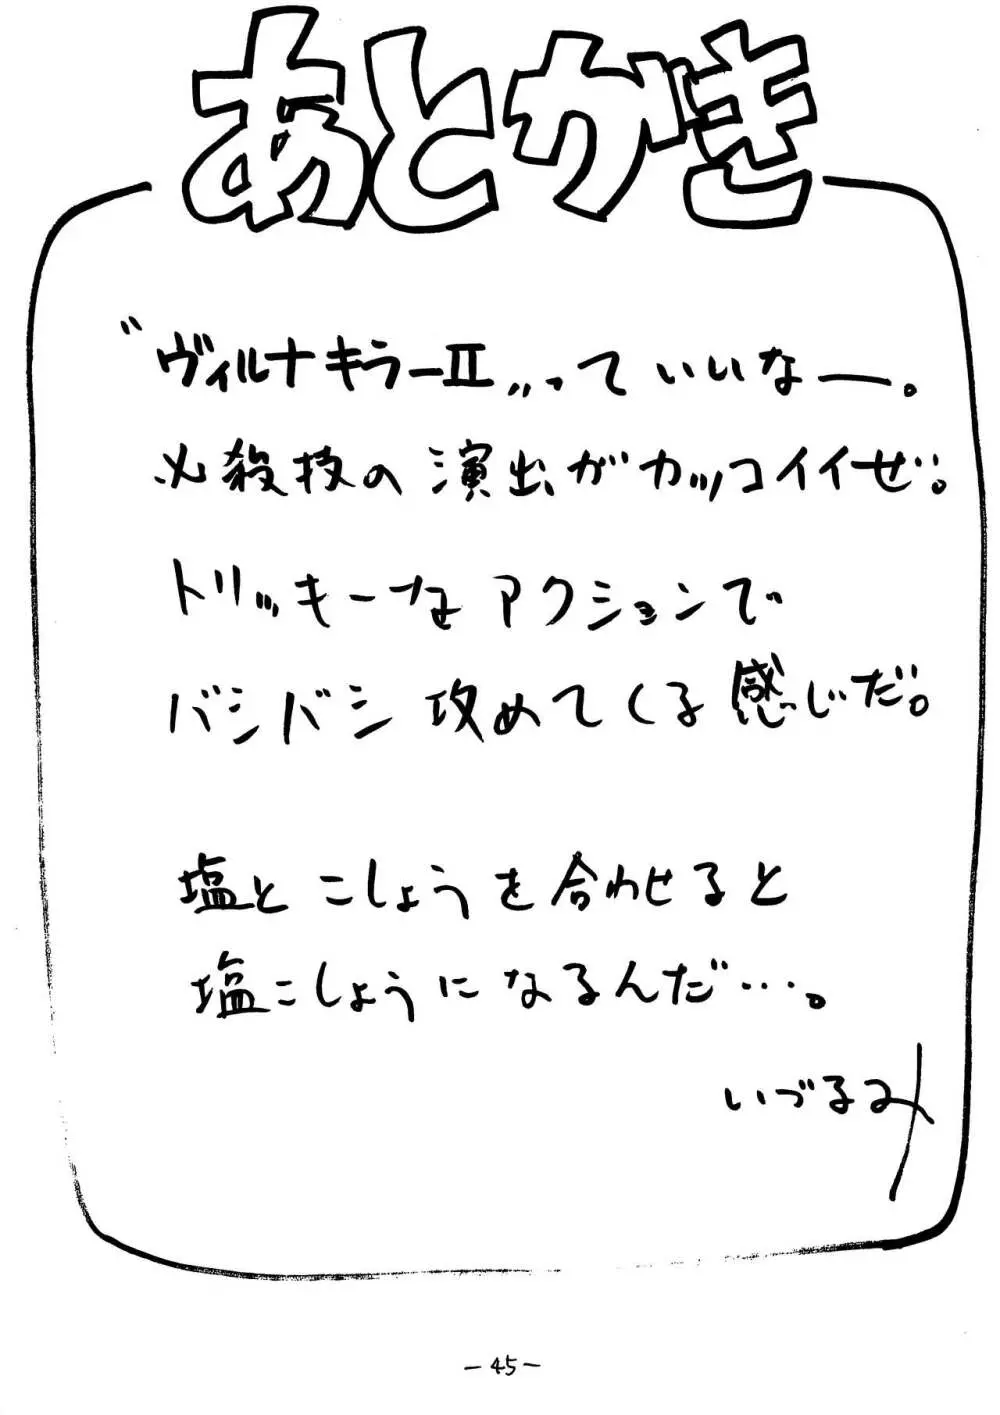 あとがき
"ヴィルナキラーⅡ〃って いいなー。
必殺技の 演出がカッコイイぜ。
トリッキーな アクションで
バシバシ 攻めてくる 感じだ。
塩と こしょうを 合わせると
塩こしょうに なるんだ…。
いづるみ
-45-